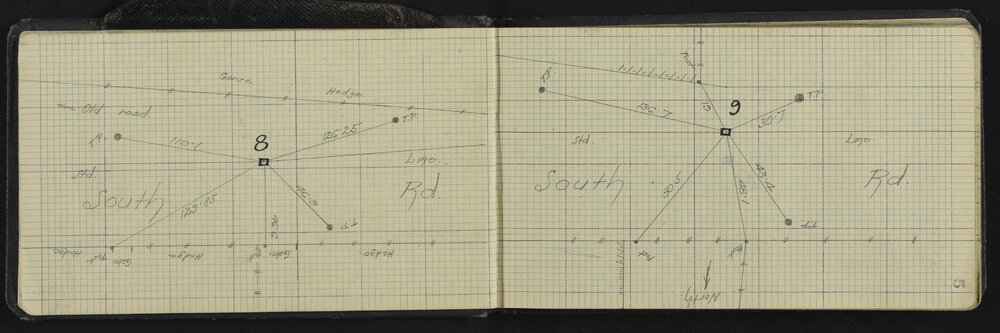 Gorse Hedge
Old road
T.P.
8
T.P.
110.1
126.25
Std.
Line
South Rd.
129.85
46.9
T.P.
Hedge
Gate Post
Hedge
Gate Post
Hedge
T.P.
T.P.
9
136.7
19
30.7
Std.
Line
South Rd.
80.5
48.1
43.4
T.P.
Post
Post
North
5